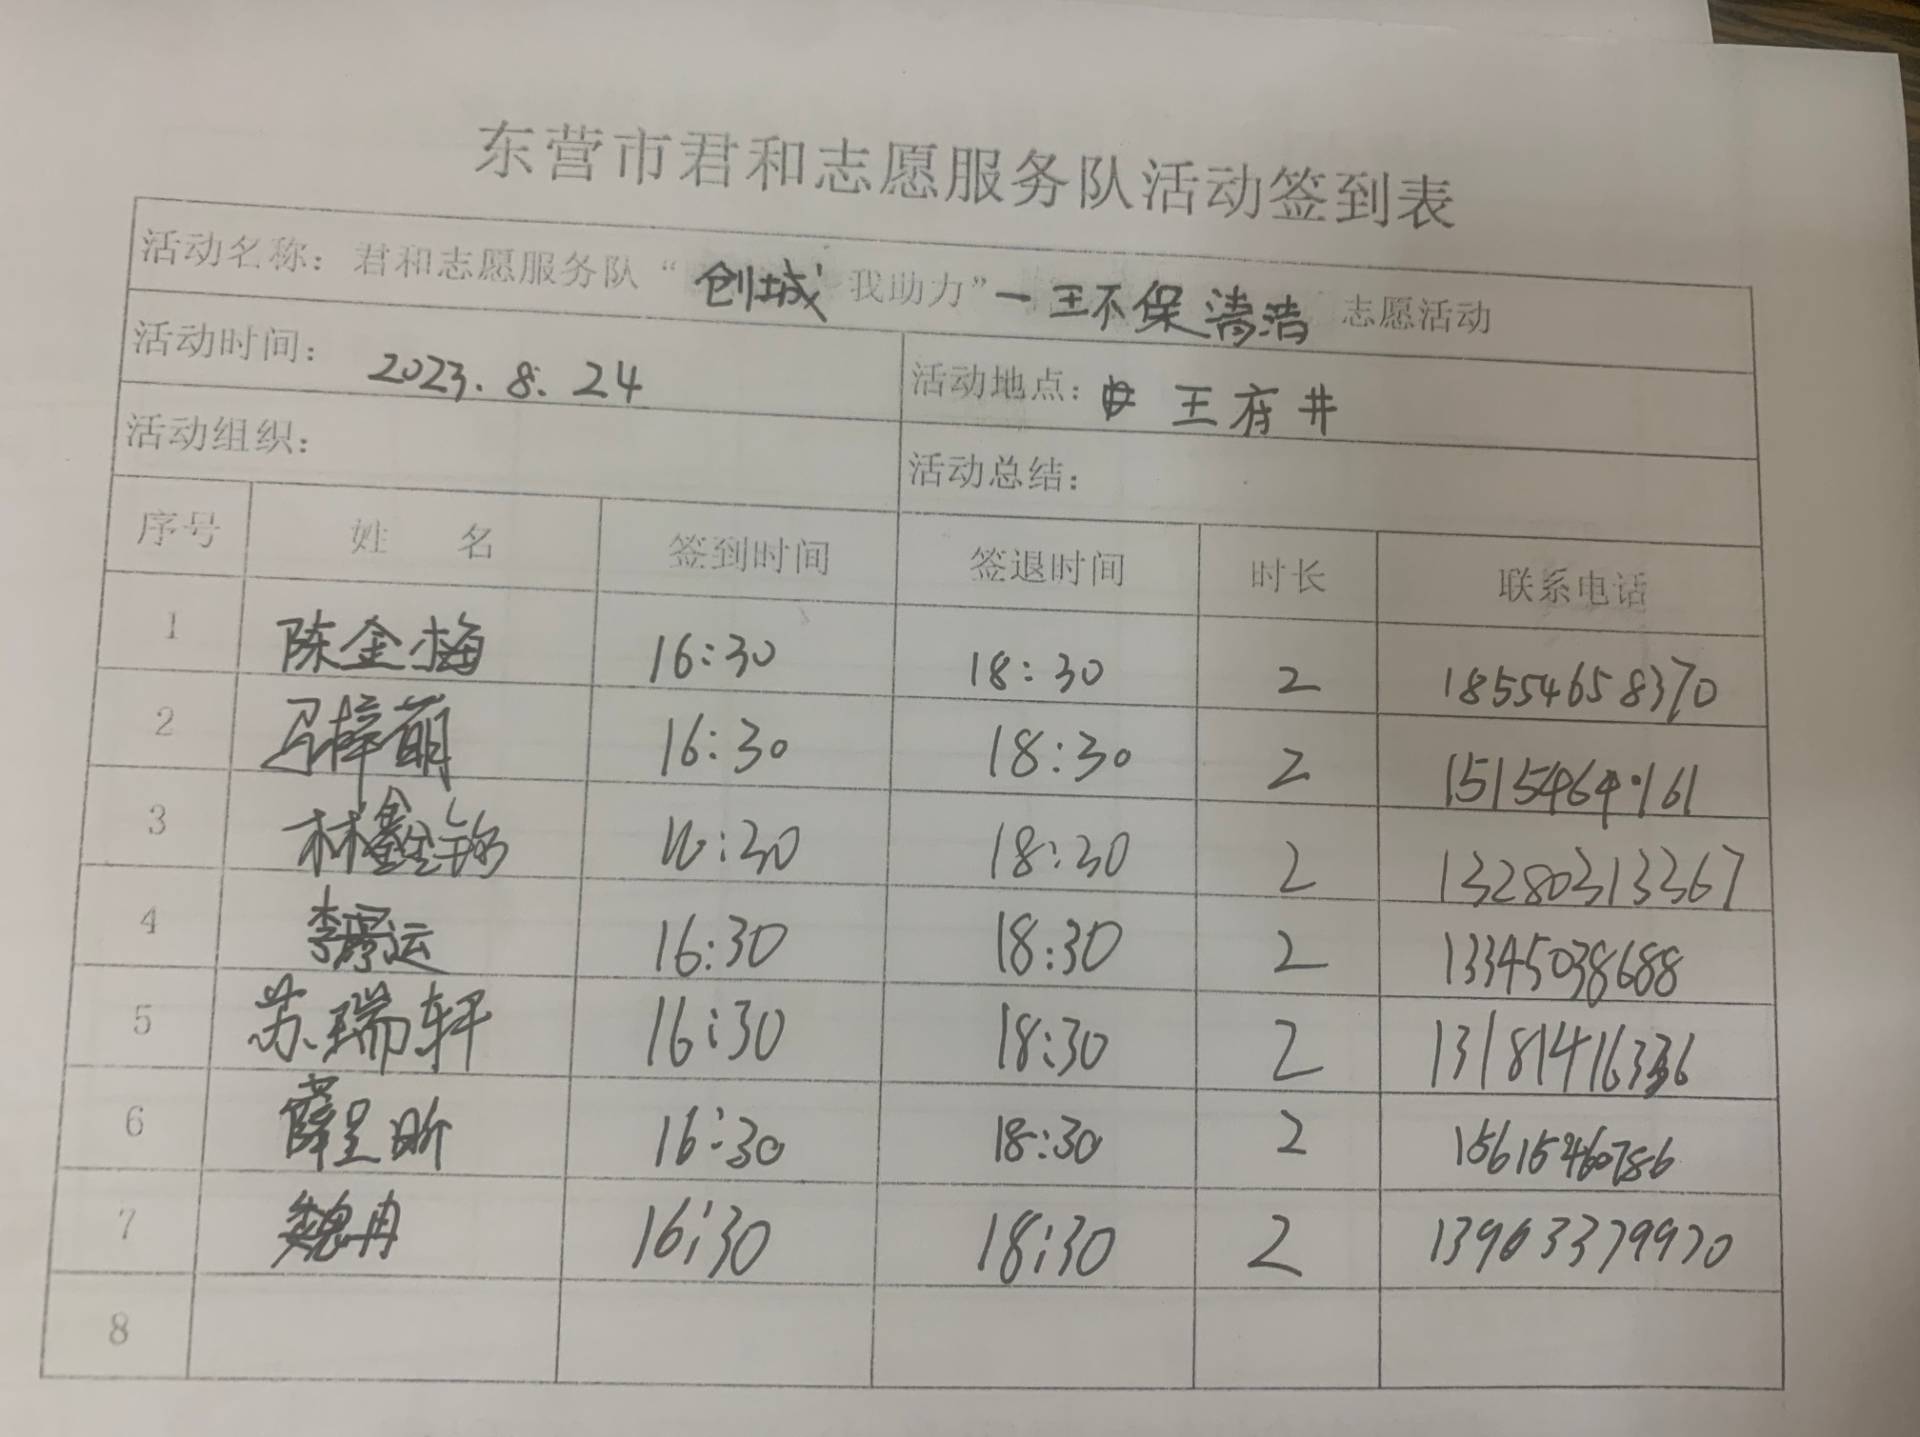 东营市君和志愿服务队活动签到表
活动名称：君和志愿服务队“创城 我助力”—环保清洁 志愿活动
活动时间： 2023.8.24 活动地点： 王府井
活动组织： 活动总结：
序号 姓 名 签到时间 签退时间 时长 联系电话
1 陈金梅 16:30 18:30 2 18554658370
2 马梓萌 16:30 18:30 2
3 林鑫 16:30 18:30 2 13280313367
4 李 运 16:30 18:30 2 13345038688
5 苏瑞轩 16:30 18:30 2 13181416336
6 薛呈昕 16:30 18:30 2 15615460786
7 魏冉 16:30 18:30 2 13963379970
8